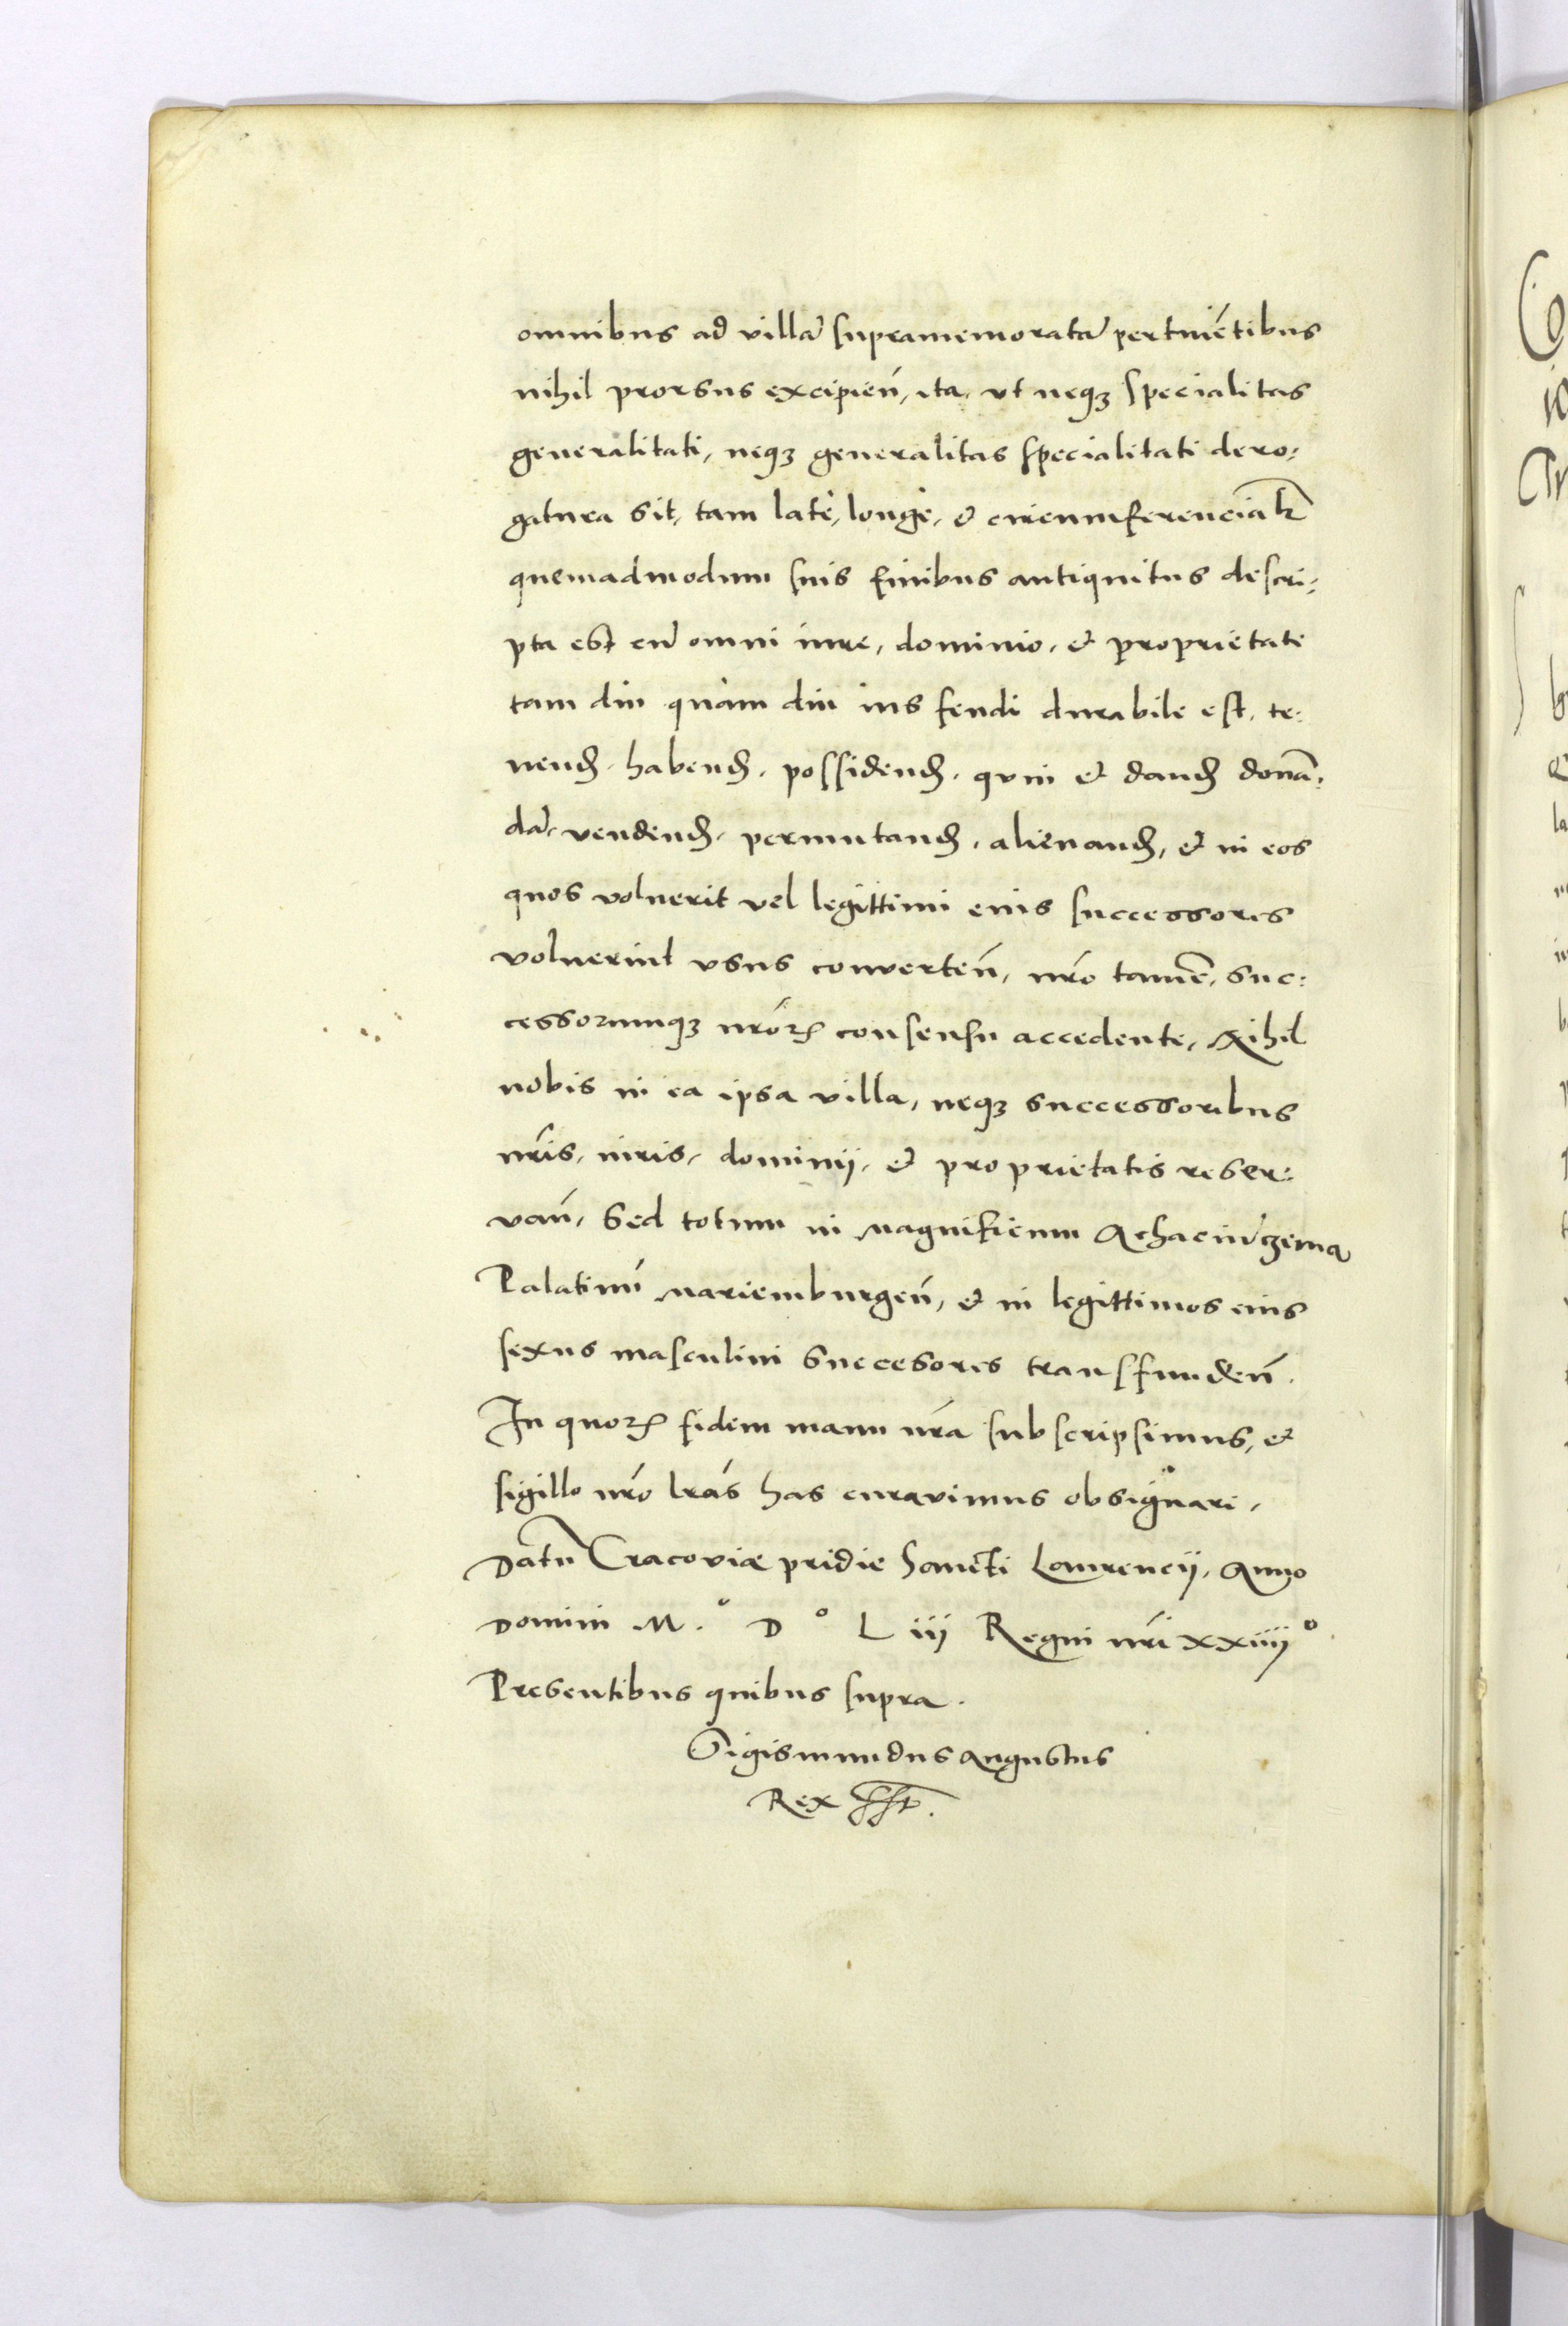 omnibus ad villā supramemoratā pertinētibus
nihil prorsus excipień, ita, vt neqꝫ specialitas
generalitati, neqꝫ generalitas specialitati dero:
gatura sit, tam late, longe, & circumferencialr̃
quemadmodum suis finibus antiquitus descri:
pta est cū omni iure, dominio, et proprietate
tam diu quàm diu ius feudi durabile est, te:
nend̃. habend̃. possidend̃. quin et dand̃ donā:
dā, vendend̃. permutand̃, alienand̃, et in eos
quos voluerit vel legittimi eius successores
voluerint vsus converteń, nr̃o tamē, suc:
cessorumqꝫ nr̃oꝝ consensu accedente, Nihil
nobis in ea ipsa villa, neqꝫ successoribus
nr̃is, iuris, dominij, et proprietatis reser:
vań, Sed totum in Magnificum Achaciū Czema
Palatinū Mariemburgeń, et in legittimos eius
sexus masculini succesores transfundeń.
In quoꝝ fidem manu nr̃a subscripsimus, et
sigillo nr̃o lr̃as has curavimus obsignari,
Datū Cracoviæ pridie Sancti Laurencij, Anno
Domini M.º D º L iij Regni nr̃i xxiiijº.
Presentibus quibus supra.
Sigismundus Augustus
Rex sst.